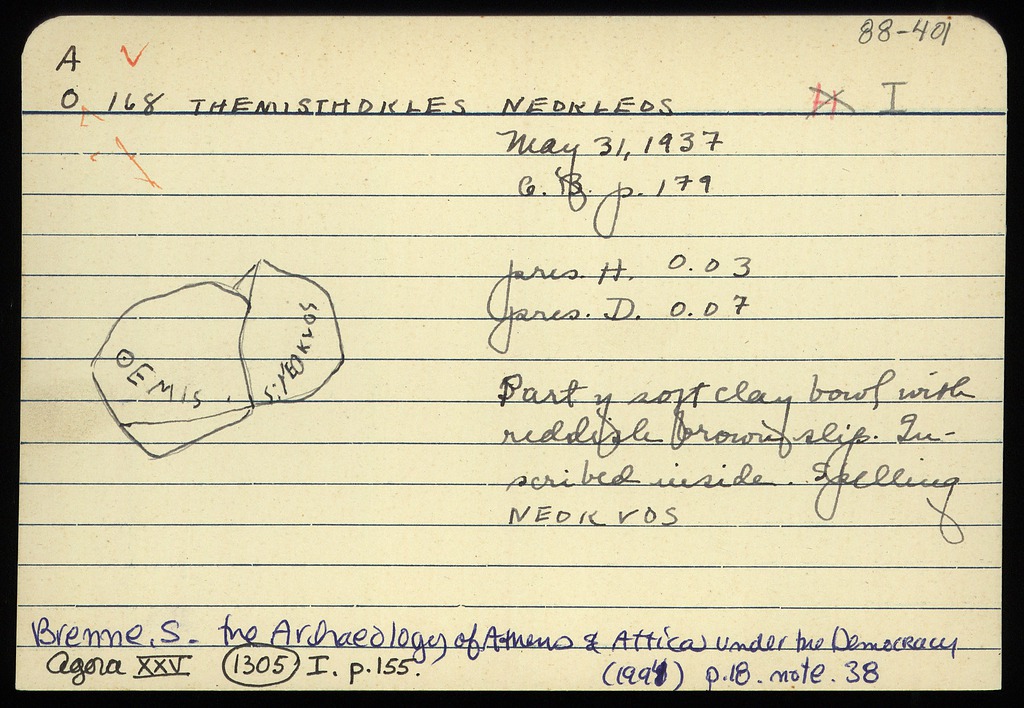 88-401
A V
O 168 THEMISTHOKLES NEOKLEOS H I
May 31, 1937
p. 179
pres. H. 0.03
pres. D. 0.07
ΘEMIS
S:NEOKVOS
Part of soft clay bowl with
reddish brown slip. In-
scribed inside. Spelling
NEOKVOS
Brenne, S. the Archaeology of Athens & Attica under the Democracy
Agora XXV 1305 I. p.155.
(1994) p.18. note. 38